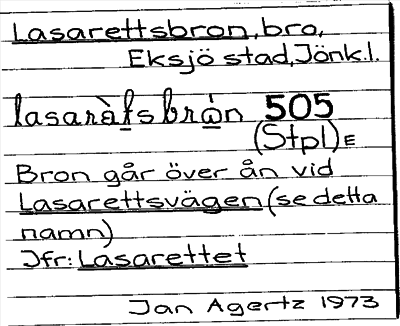 Lasarettsbron, bro,
Eksjö stad, Jönk.l.
lasaràt̲sbrώ̲n 505
(Stpl) E
Bron går över ån vid
Lasarettsvägen (se detta
namn)
Jfr: Lasarettet
Jan Agertz 1973